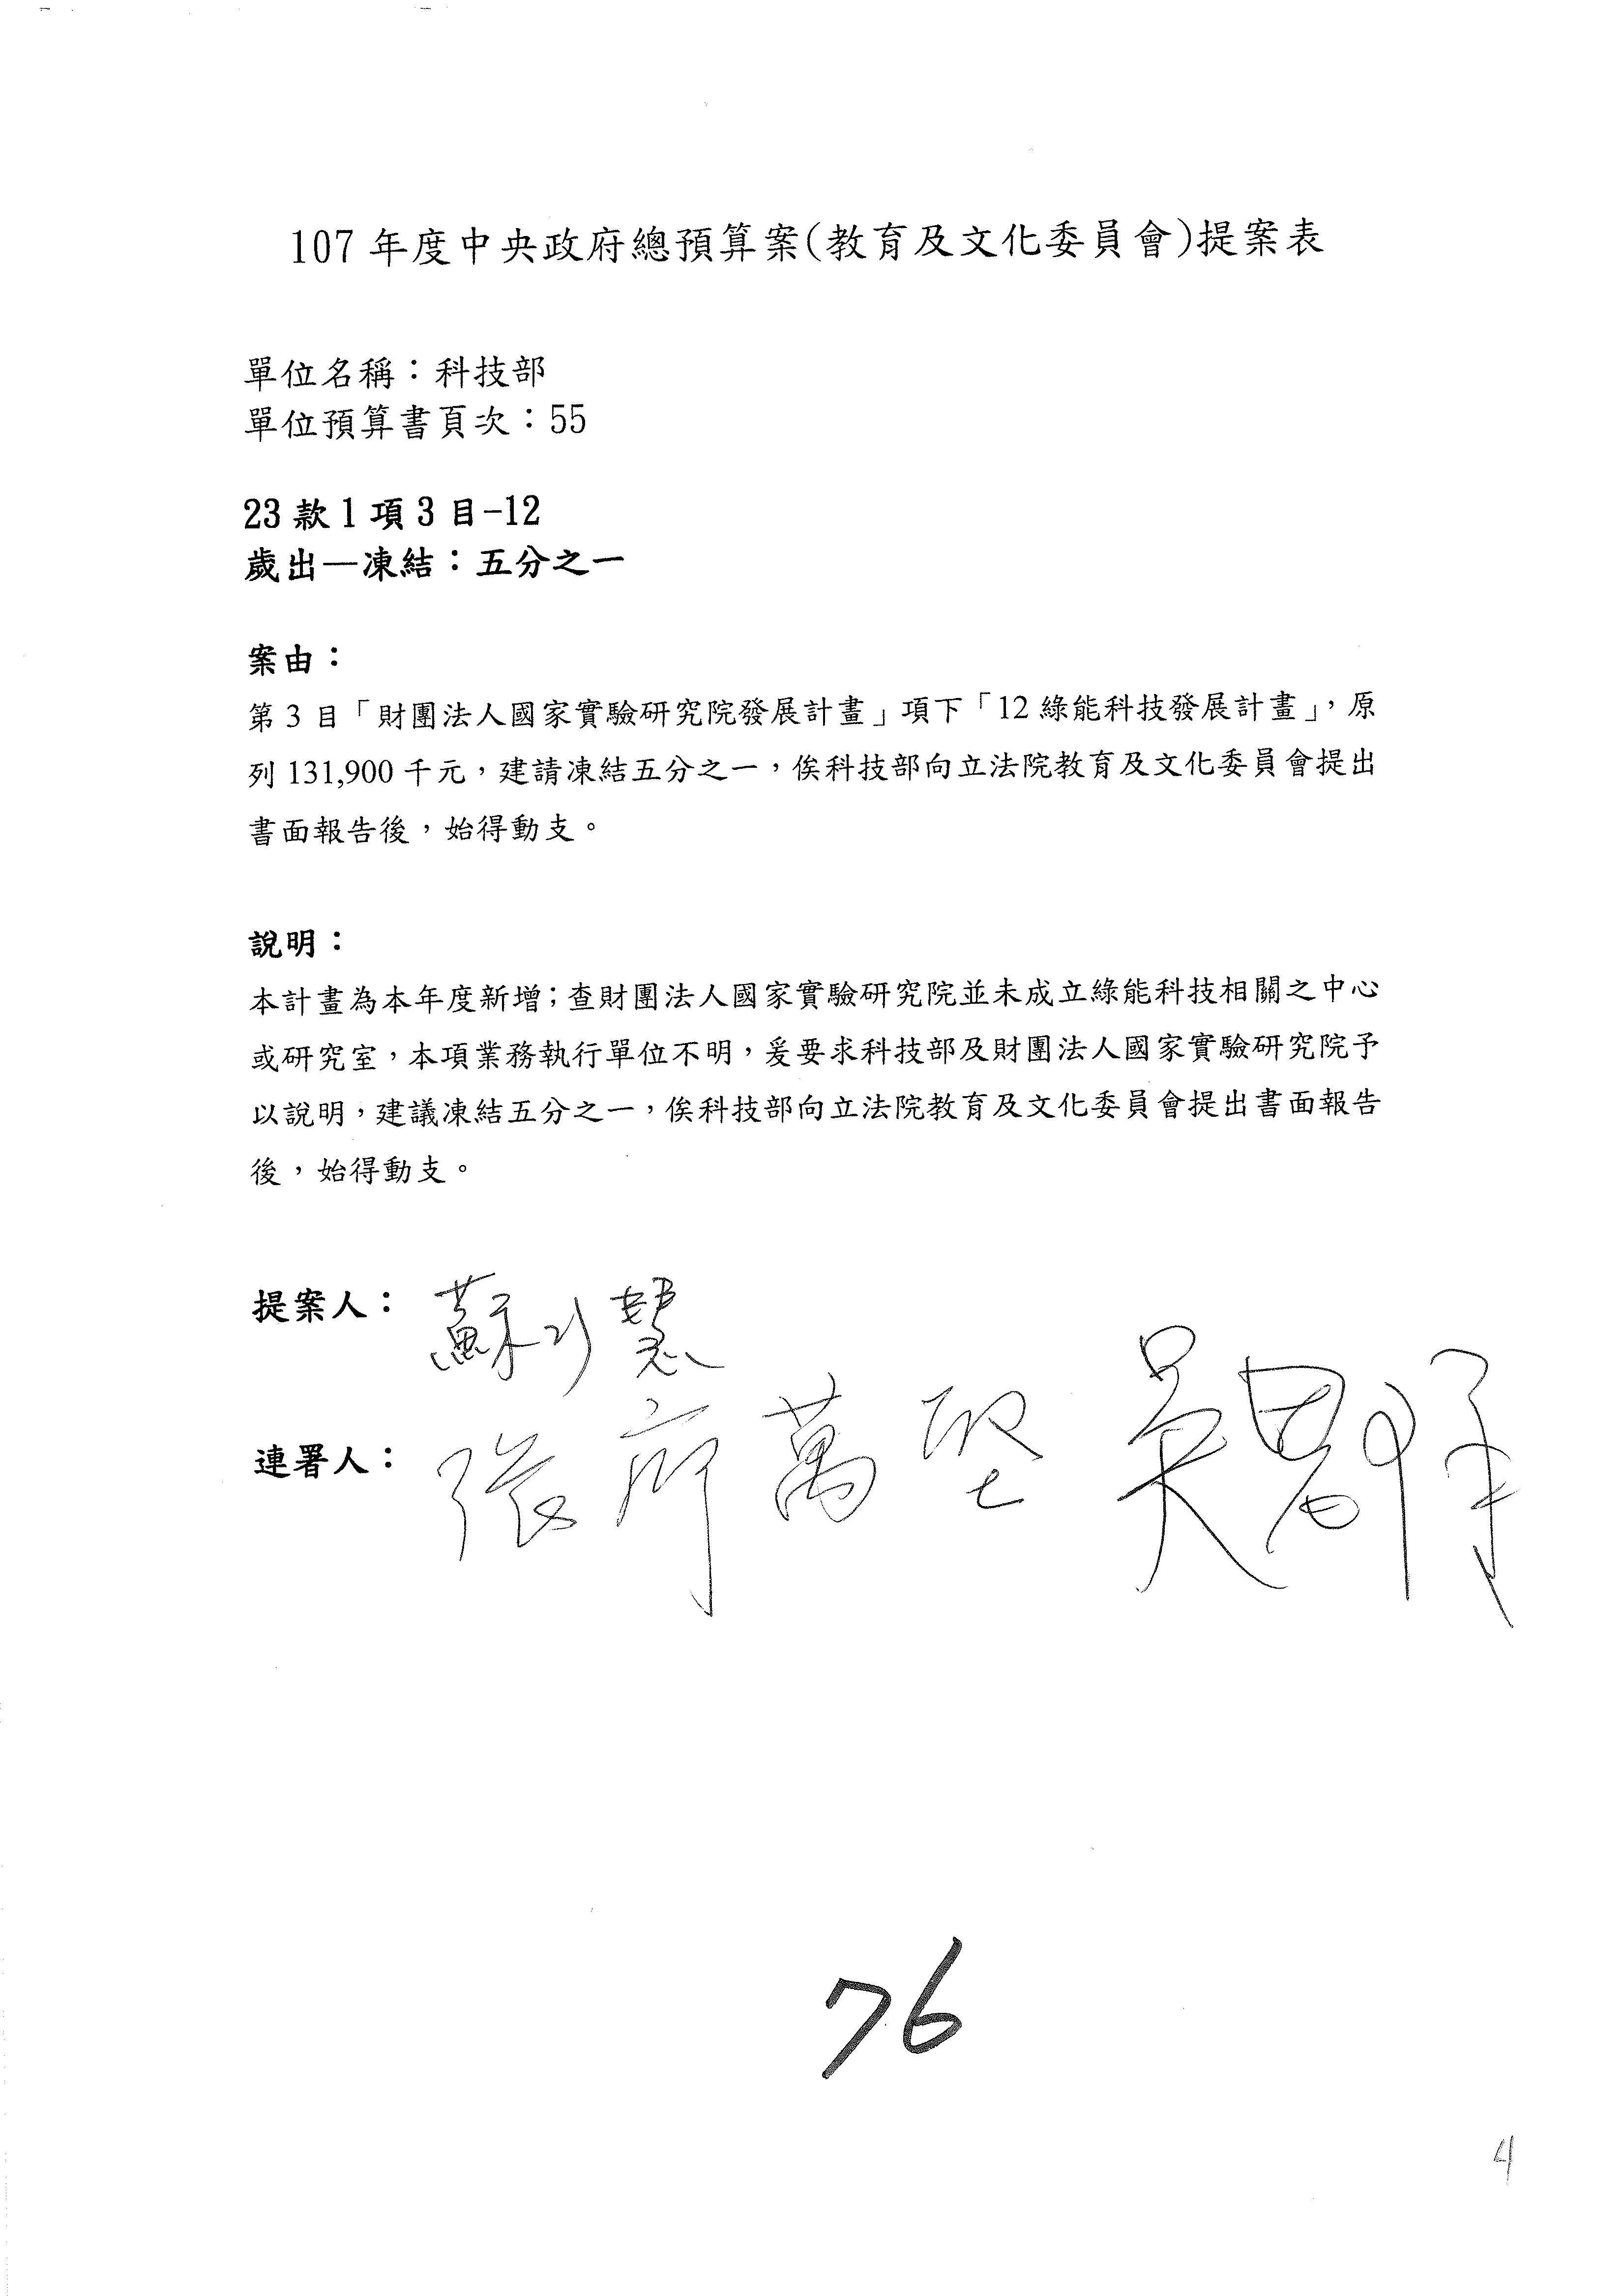 107年度中央政府總預算案(教育及文化委員會)提案表
單位名稱：科技部
單位預算書頁次：55
23款1項3目-12
歲出—凍結：五分之一
案由：
第3目「財團法人國家實驗研究院發展計畫」項下「12綠能科技發展計畫」，原
列131,900千元，建請凍結五分之一，俟科技部向立法院教育及文化委員會提出
書面報告後，始得動支。
說明：
本計畫為本年度新增；查財團法人國家實驗研究院並未成立綠能科技相關之中心
或研究室，本項業務執行單位不明，爰要求科技部及財團法人國家實驗研究院予
以說明，建議凍結五分之一，俟科技部向立法院教育及文化委員會提出書面報告
後，始得動支。
提案人：蘇巧慧
連署人：張廖萬堅 吳思瑤
76
4